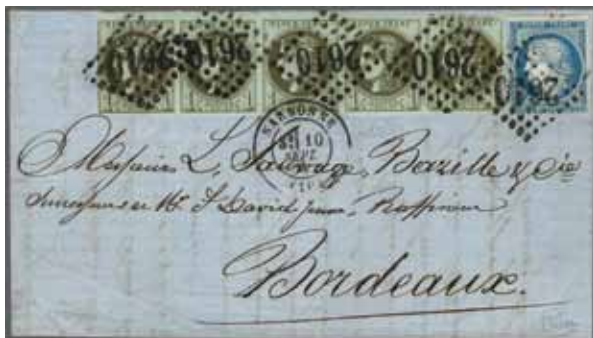 2610 2610 2610 2610 2610
NARBONNE
10
SEPT.
Messieurs L. Sauvage, Bazille & Cie
Successeurs de Mr. J. David jeune, Raffineur
Bordeaux.